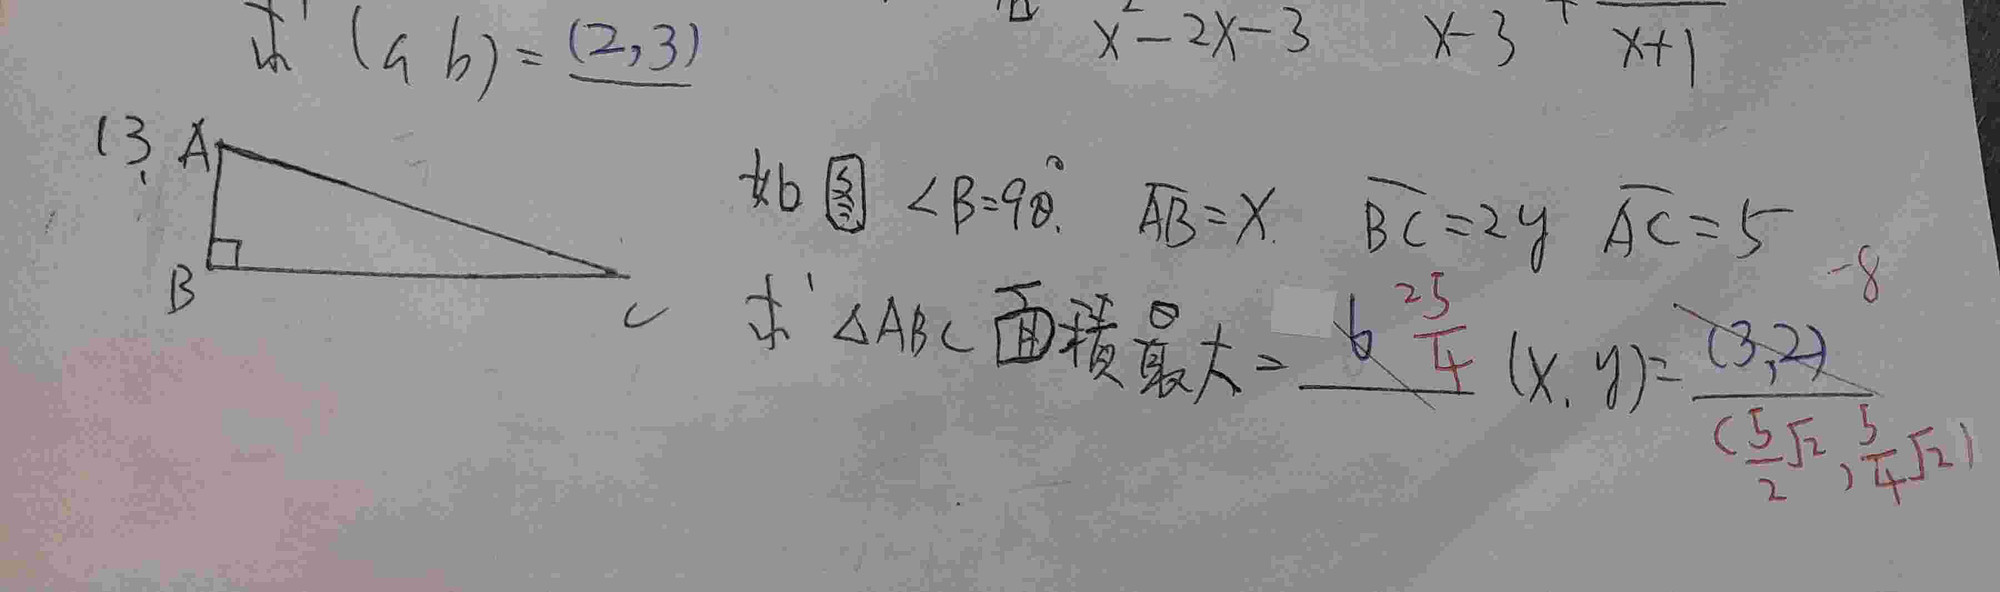 求 (a b) = (2,3)
x²-2x-3 x-3 + x+1
13、 A B C
如圖 ∠B=90°. AB=x. BC=2y AC=5
-8
求 △ABC 面積最大= 6 25/4 (x, y)= (3,2)
(5/2√2, 5/4√2)